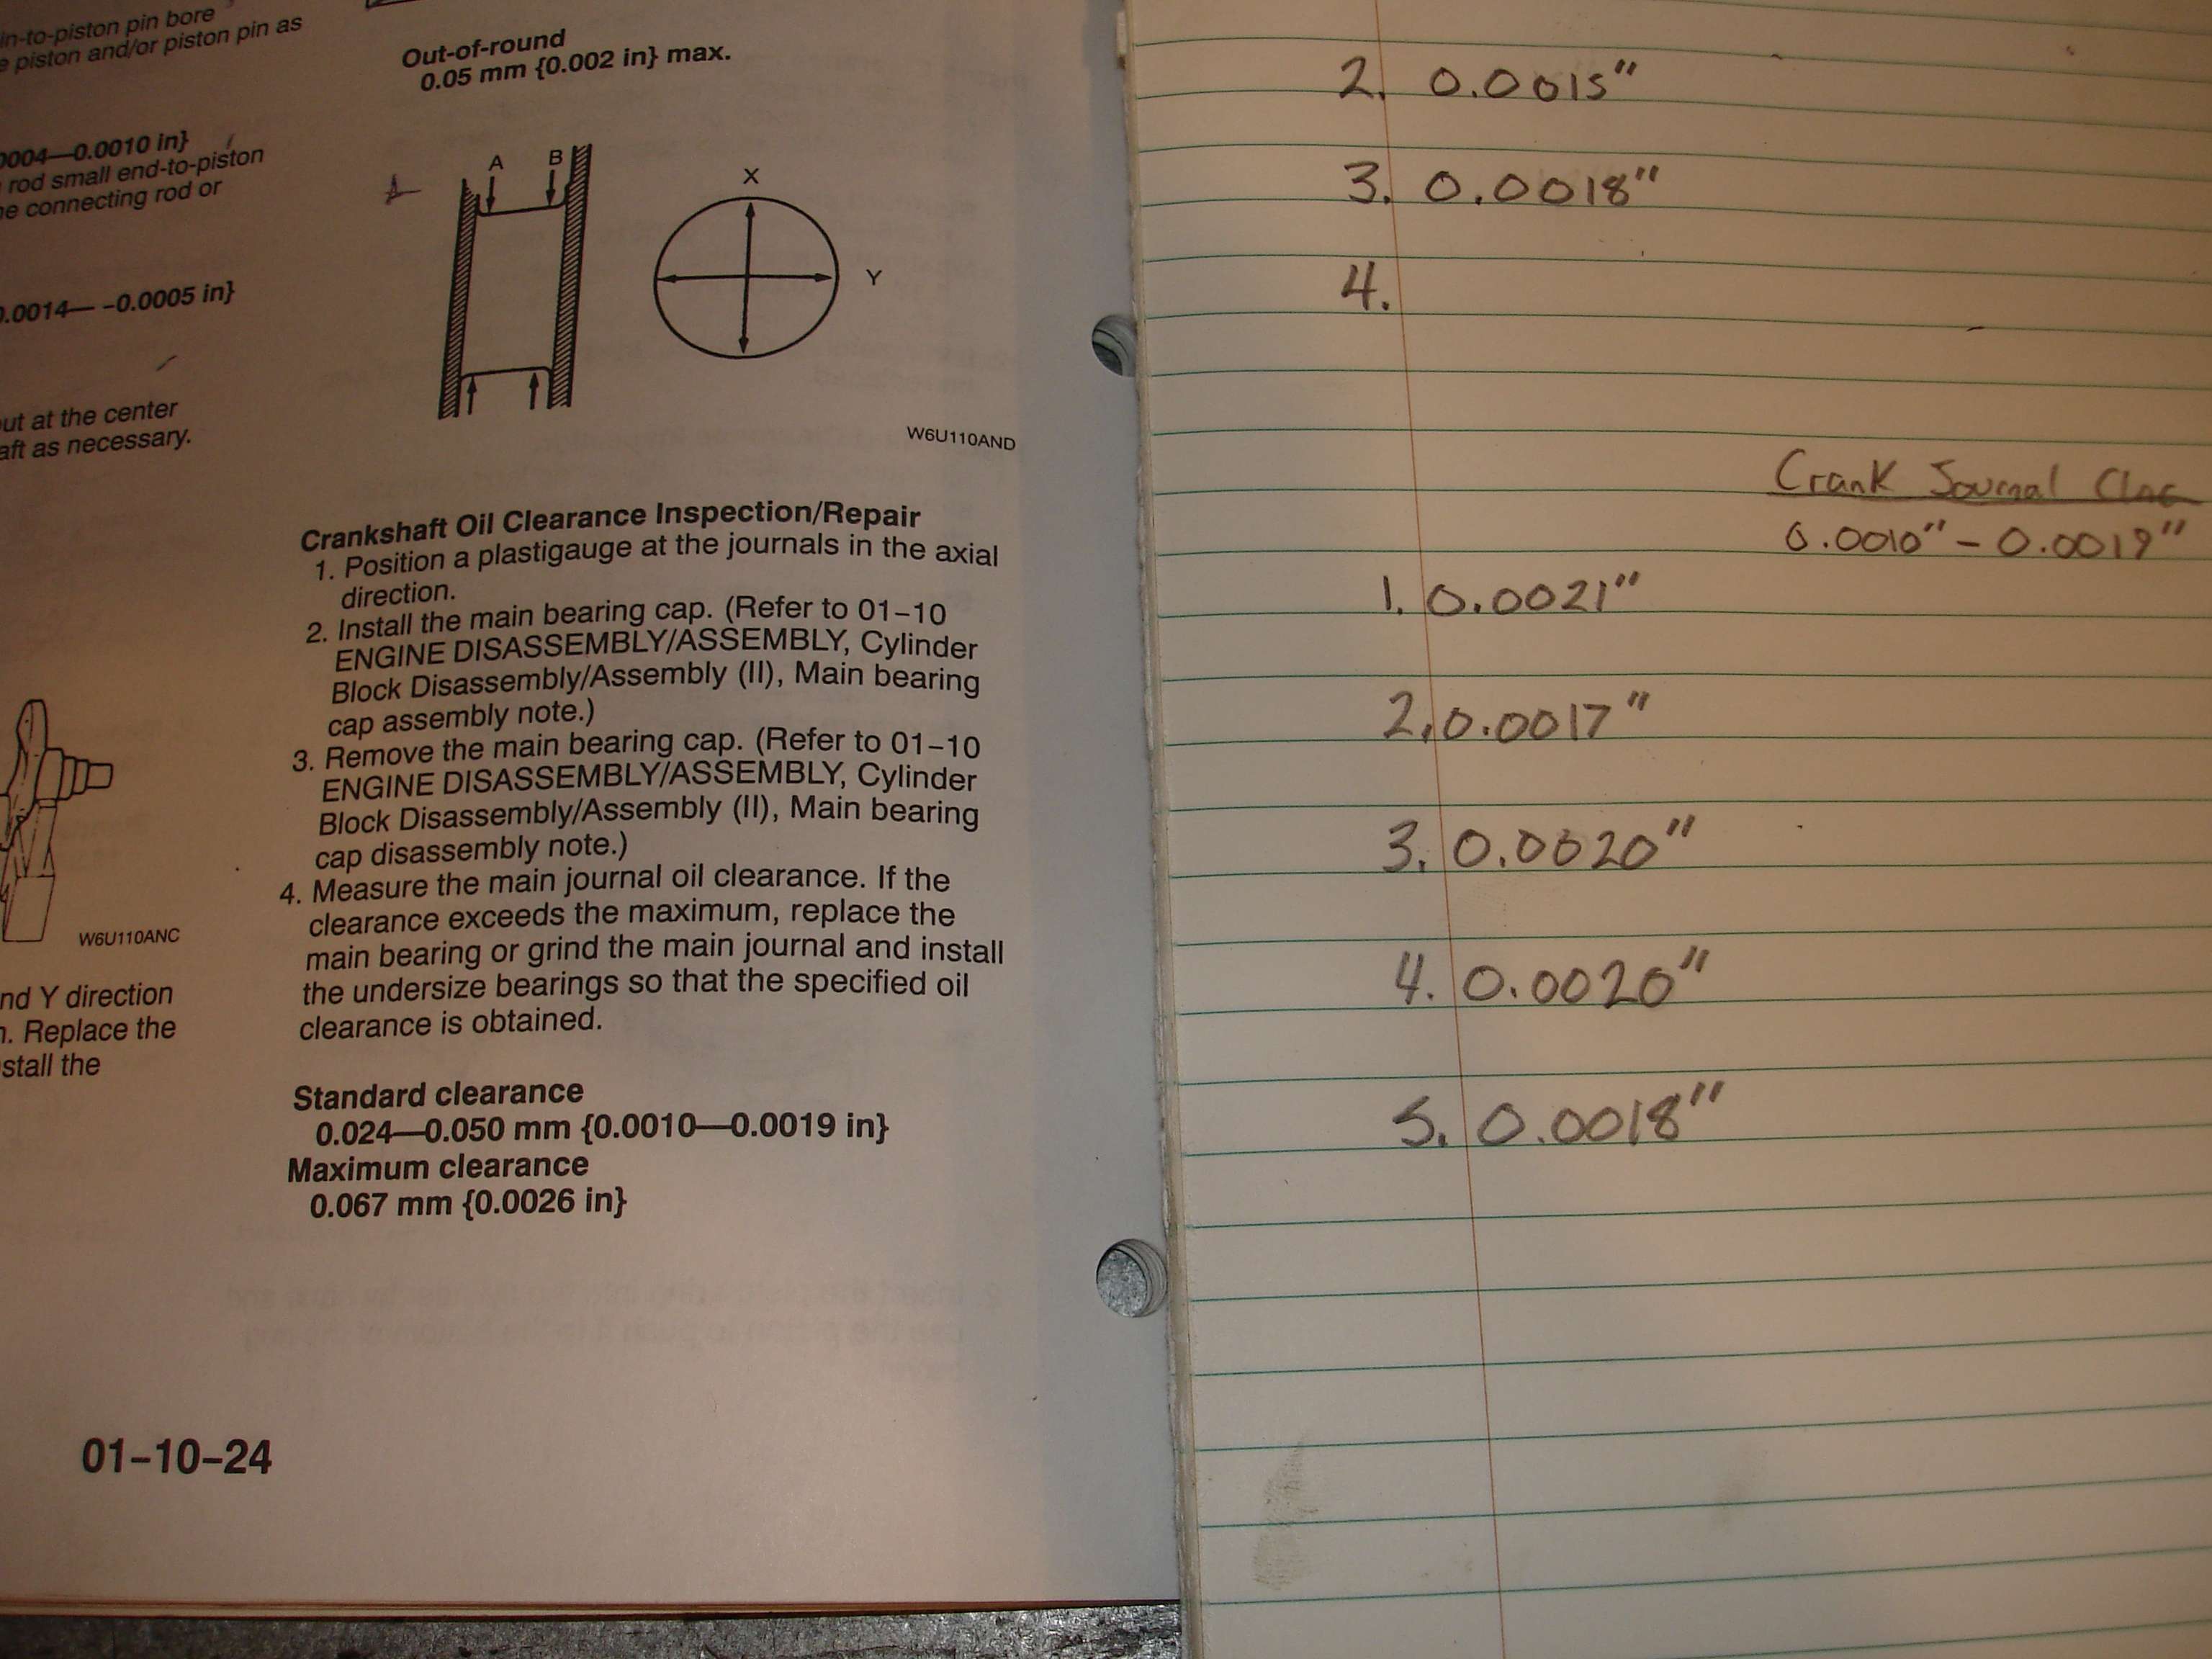 in-to-piston pin bore
piston and/or piston pin as
0004—0.0010 in}
rod small end-to-piston
connecting rod or
0.0014— -0.0005 in}
out at the center
aft as necessary.
W6U110ANC
nd Y direction
Replace the
stall the
Out-of-round
0.05 mm {0.002 in} max.
A
B
X
Y
W6U110AND
Crankshaft Oil Clearance Inspection/Repair
1. Position a plastigauge at the journals in the axial
direction.
2. Install the main bearing cap. (Refer to 01–10
ENGINE DISASSEMBLY/ASSEMBLY, Cylinder
Block Disassembly/Assembly (II), Main bearing
cap assembly note.)
3. Remove the main bearing cap. (Refer to 01–10
ENGINE DISASSEMBLY/ASSEMBLY, Cylinder
Block Disassembly/Assembly (II), Main bearing
cap disassembly note.)
4. Measure the main journal oil clearance. If the
clearance exceeds the maximum, replace the
main bearing or grind the main journal and install
the undersize bearings so that the specified oil
clearance is obtained.
Standard clearance
0.024—0.050 mm {0.0010—0.0019 in}
Maximum clearance
0.067 mm {0.0026 in}
01–10–24
2. 0.0015"
3. 0.0018"
4.
Crank Journal
0.0010" - 0.0019"
1. 0.0021"
2. 0.0017"
3. 0.0020"
4. 0.0020"
5. 0.0018"